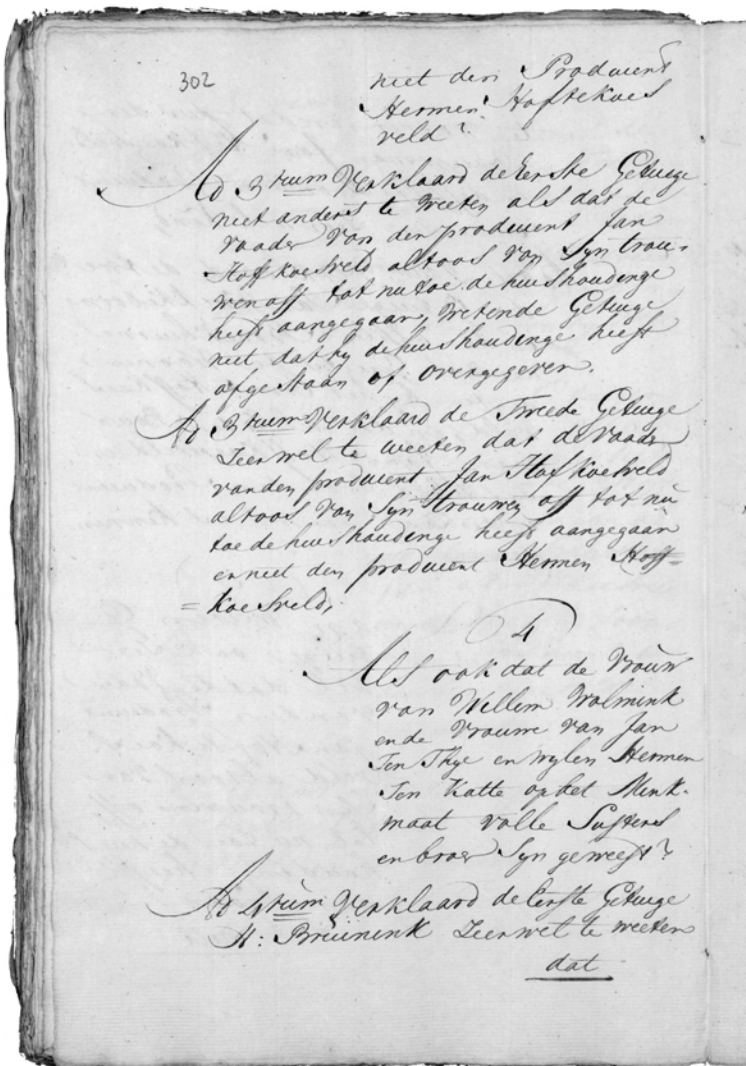 302
niet den Producent
Hermen Hofte Koes
veld?
Ad 3tium Verklaard de Eerste Getuige
niet anders te weeten als dat de
vaader van den producent Jan
Hoff Koesveld altoos van Syn trou-
wen aff tot nu toe de huishoudinge
heeft aangegaan, wetende Getuige
niet dat hy de huishoudinge heeft
afgestaan of overgegeven.
Ad 3tium Verklaard de Tweede Getuige
Zeer wel te weeten dat de Vaader
van den producent Jan Hof Koesveld
altoos van Syn trouwen aff tot nu
toe de huishoudinge heeft aangegaan
en niet den producent Hermen Hoff-
= Koesveld.
4
Als ook dat de Vrouw
van Willem Wolmink
ende Vrouwe van Jan
Ten Thye en wylen Hermen
Ten Katte op het Menk-
maat volle Susters
en broer Syn geweest?
Ad 4tum Verklaard de Eerste Getuige
H: Bruinink Zeer wel te weeten
dat